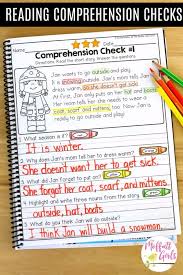 READING COMPREHENSION CHECKS
Comprehension Check #1
Directions: Read the short story. Answer the questions.
Jan wants to go outside and play.
It is snowing outside. Jan's mom tells her
to dress warm, so she doesn't get sick.
Jan only puts on her hat and boots.
Her mom tells her she needs to wear a
coat, scarf, and mittens. Now Jan is
ready to go outside and play!
1. What season is it?
It is winter.
2. Why does Jan's mom tell her to dress warm?
She doesnt want her to get sick.
3. What did Jan forget to put on?
She forgot her coat, scarf, and mittens.
4. Highlight and write three nouns from the story.
outside, hat, boots,
5. What do you think Jan will do outside?
I think Jan will build a snowman.
Moffatt Girls